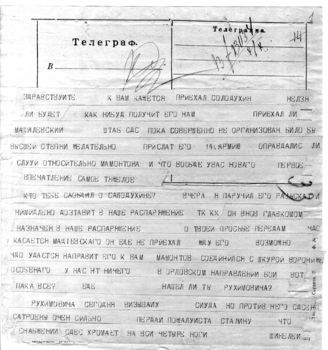 Телеграф.
Телеграмма
14
В
ЗДРАВСТВУЙТЕ К ВАМ КАЖЕТСЯ ПРИЕХАЛ СОЛОДУХИН НЕЛЗЯ
ЛИ БУДЕТ КАК НИБУД ПОЛУЧИТ ЕГО НАМ ПРИЕХАЛ ЛИ
ШТАБ САС ПОКА СОВЕРШЕННО НЕ ОРГАНИЗОВАН БИЛО БЫ
ВЫСШЕЙ СТЕПНИ ЖЕЛАТЕЛЬНО ПРИСЛАТ ЕГО 14 АРМИЮ ОПРАВДАЛИС ЛИ
СЛУХИ ОТНОСИТЕЛЬНО МАМОНТОВА И ЧТО ВООБЩЕ УВАС НОВАГО ПЕРВОЕ
ВПЕЧАТЛЕНИЕ САМОЕ ТЯЖЕЛОЕ
КТО ТЕБЕ САОБЩИЛ О САЛОДУХИНЕ? ВЧЕРА Я ПАРУЧИЛ ЕГО РАЗЫСКАТ И
НИМИДЛЕНО ДОЗТАВИТ В НАШЕ РАСПАРЯЖЕНИЕ ТК КХ ОН ВНОВ ГЛАВКОМОМ
НАЗНАЧЕН В НАШЕ РАСПАРЯЖЕНИЕ О ТВОЕЙ ПРОСЬБЕ ПЕРЕДАМ ЧАС
КАСАЕТСЯ ОН ЕЩЕ НЕ ПРИЕХАЛ ЖДУ ЕГО ВОЗМОЖНО
ЧТО УДАСТСЯ НАПРАВИТ ЕГО К ВАМ МАМОНТОВ СОЕДИНИЛСЯ С ШКУРОЙ ВОРОНИЖЕ
ОСОБЕНАГО У НАС НТ НИЧЕГО В ОРЛОВСКОМ НАПРАВЛЕНИИ БОИ ВОТ
ПАКА ВСЕ? ЕЩЕ НАШЕЛ ЛИ ТЫ РУХИМОВИЧА?
РУХИМОВИЧА СЕГОДНЯ ВИЗЫВАЮ СЮДА НО ПРОТИВ НЕГО
ОЧЕН СИЛЬНО ПЕРЕДАЙ ПАЖАЛУЙСТА СТАЛИНУ ЧТО
СНАБЖЕНИИ СДЕС ХРОМАЕТ НА ВСИ ЧЕТЫРЕ НОГИ